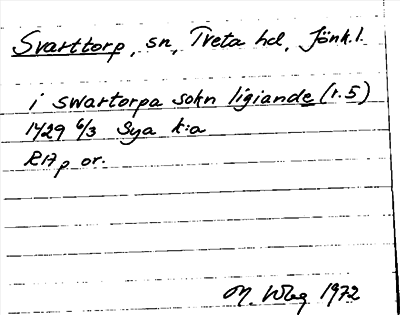 Svarttorp, sn, Tveta hd, Jönk.l.
i swartorpa sokn ligiande (r.5)
1429 6/3 Sya k:a
RAp or.
M. Wbg 1972